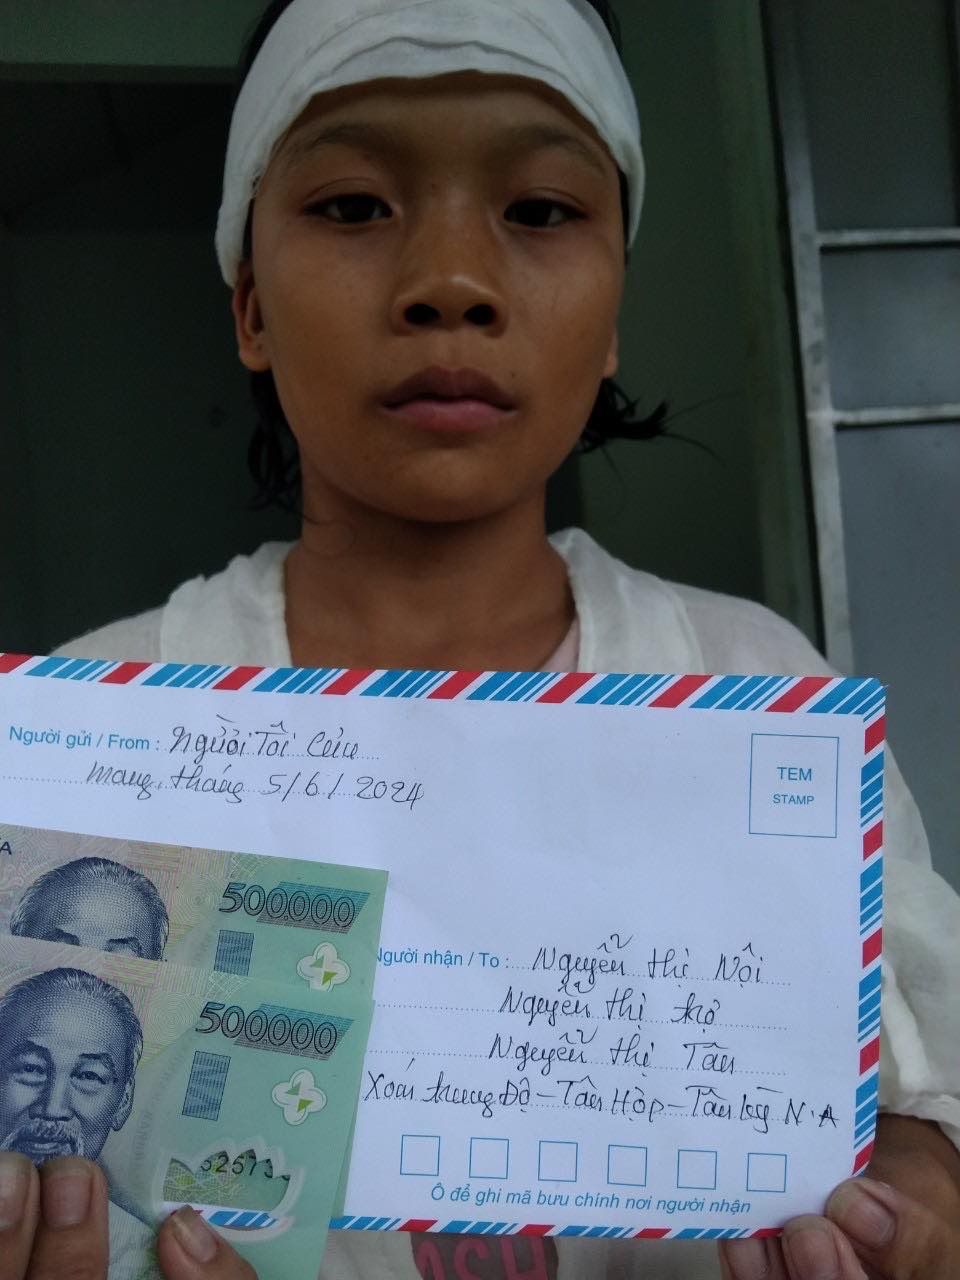 Người gửi / From : Người Tôi Cưu
mang, tháng 5/6/2024
TEM
STAMP
A
500000
500000
Người nhận / To : Nguyễn thị Nội
Nguyễn thị thọ
Nguyễn thị Tân
Xóm trung Độ - Tân Hộp - Tân Kỳ N.A
Ô để ghi mã bưu chính nơi người nhận